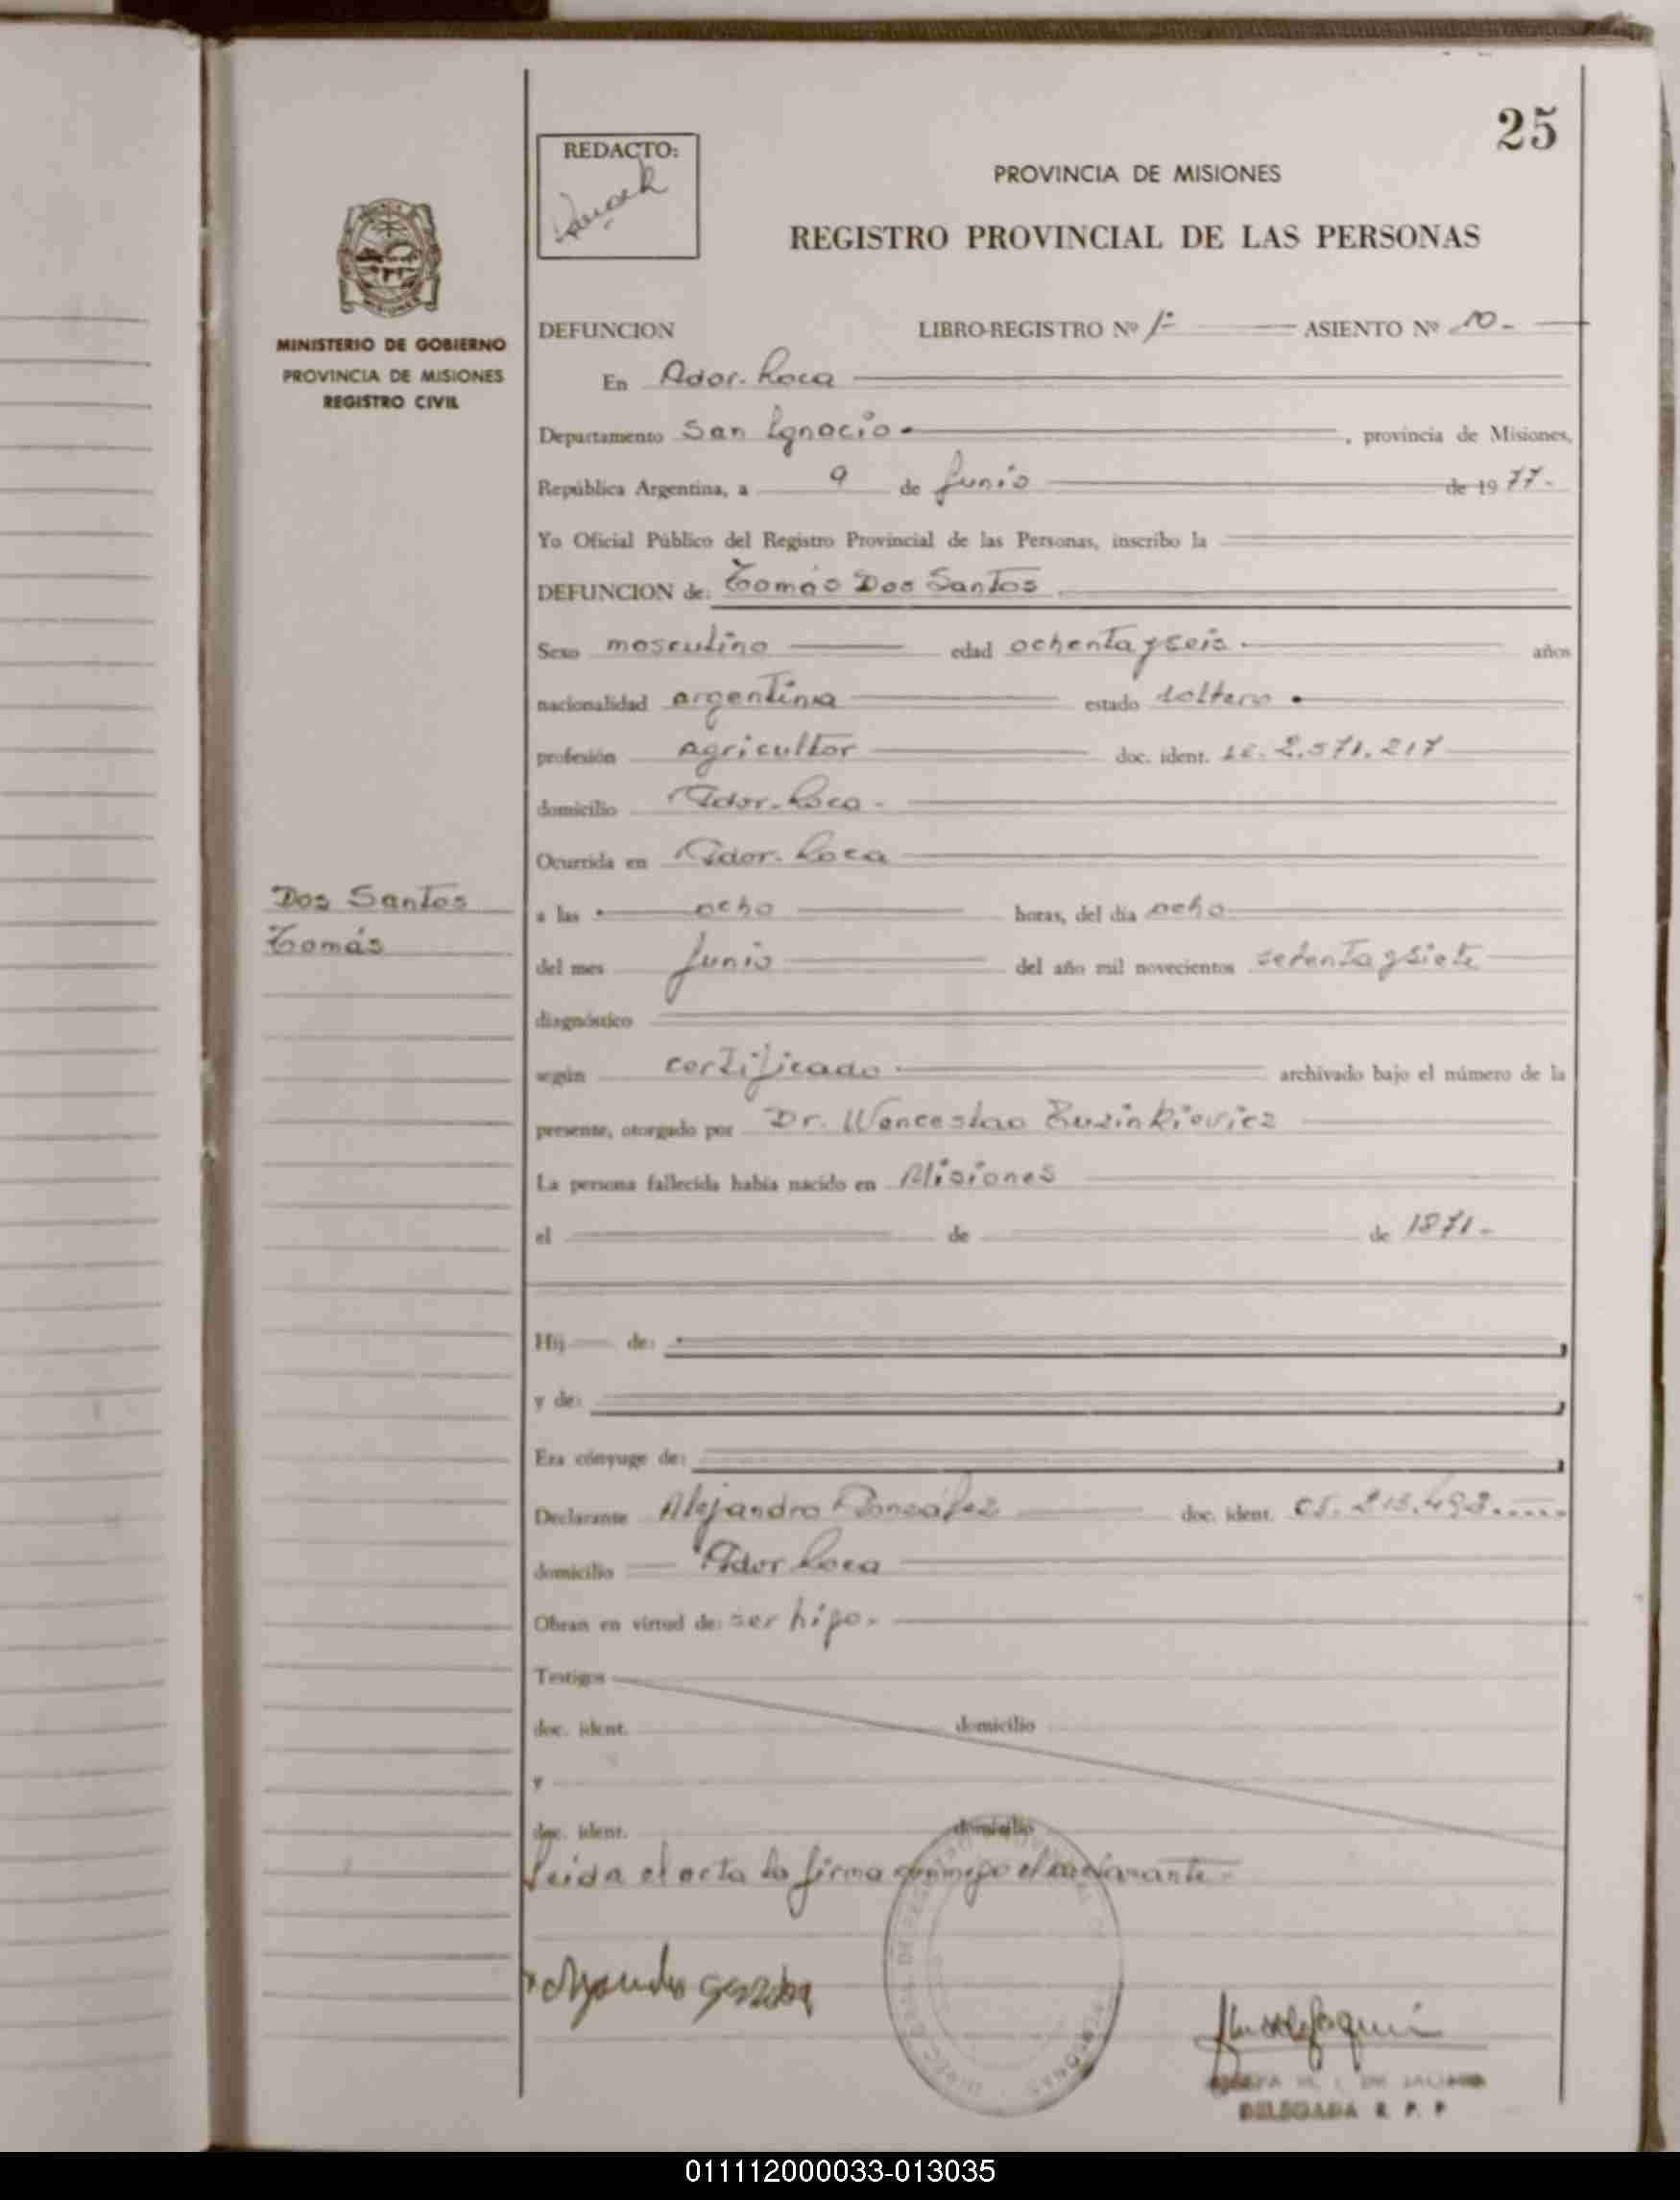 25
REDACTO:
PROVINCIA DE MISIONES
REGISTRO PROVINCIAL DE LAS PERSONAS
MINISTERIO DE GOBIERNO
PROVINCIA DE MISIONES
REGISTRO CIVIL
DEFUNCION LIBRO-REGISTRO Nº 1º ASIENTO Nº 10-
En Gdor. Roca
Departamento San Ignacio , provincia de Misiones,
República Argentina, a 9 de Junio de 1977-
Yo Oficial Público del Registro Provincial de las Personas, inscribo la
DEFUNCION de: Tomás Dos Santos
Sexo masculino edad ochenta y seis años
nacionalidad argentina estado soltero
profesión agricultor doc. ident. LE. 2.571.217
domicilio Gdor. Roca-
Ocurrida en Gdor. Roca
Dos Santos
Tomás
a las ocho horas, del día ocho
del mes Junio del año mil novecientos setenta y siete
diagnóstico
según certificado archivado bajo el número de la
presente, otorgado por Dr. Wenceslao
La persona fallecida había nacido en Misiones
el de de 1871-
Hij de: ,
y de: ,
Era cónyuge de: ,
Declarante Alejandro Gonzalez doc. ident. CI. 213.492
domicilio Gdor Roca
Obran en virtud de: ser hijo-
Testigos
doc. ident. domicilio
y
doc. ident. domicilio
Leida el acta la firma conmigo el declarante-
DELEGADA R. P. P
011112000033-013035